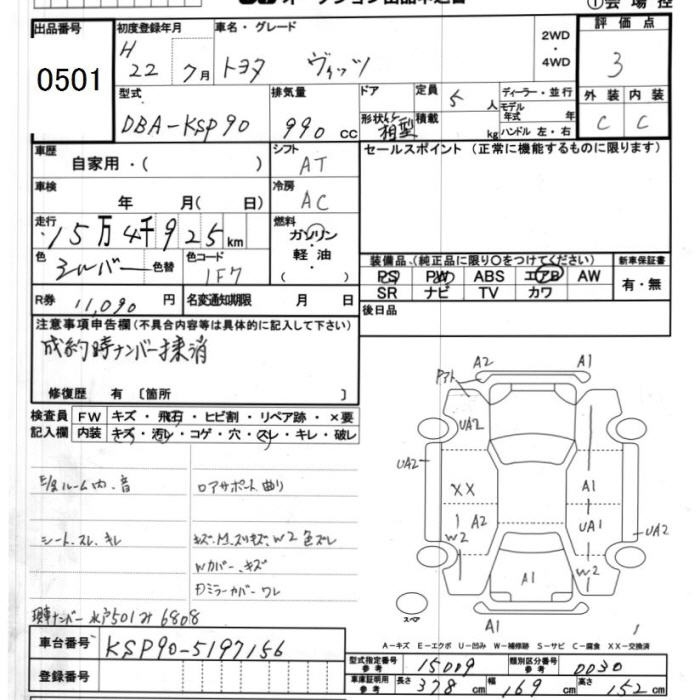 オークション出品申込書
① 会場控
出品番号
0501
初度登録年月
H 22 7月
車名・グレード
トヨタ ヴィッツ
2WD
・
4WD
評価点
3
外装 内装
C C
型式
DBA-KSP90
排気量
990 cc
ドア
形状
箱型
定員 5 人
積載 kg
ディーラー・並行
モデル年式 年
ハンドル 左・右
車歴
自家用・( )
シフト
AT
セールスポイント (正常に機能するものに限ります)
車検
年 月( 日)
冷房
AC
走行
15万4千925km
燃料
ガソリン
軽油
( )
色
シルバー 色替
色コード
1F7
装備品、(純正品に限り〇をつけてください)
PS PW ABS エアB AW
SR ナビ TV カワ
新車保証書
有・無
R券 11,090 円
名変通知期限 月 日
後日品
注意事項申告欄(不具合内容等は具体的に記入して下さい)
成約時ナンバー抹消
修復歴 有 〔箇所 〕
検査員
記入欄
FW キズ・飛石・ヒビ割・リペア跡・×要
内装 キズ・汚レ・コゲ・穴・スレ・キレ・破レ
E/gルーム内、音
ロアサポート曲り
シート、スレ、キレ
キズ、M、スリキズ、W2色ズレ
Wカバー、キズ
Dミラーカバーワレ
現車ナンバー 水戸501み6808
A2 A1
UA2
UA2
XX
A1
A2
UA1
UA2
W2 W2
A1
A1
スペア
A-キズ E-エクボ U-凹み W-補修跡 S-サビ C-腐食 XX-交換済
車台番号 KSP90-5197156
登録番号
型式指定番号 参考 15009
類別区分番号 参考 0030
車庫証明用 参考 長さ 378 cm 幅 169 cm 高さ 152 cm